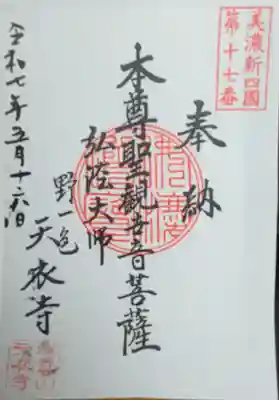 美濃新四國
第十七番
奉納
本尊聖観世音菩薩
弘法大師
野一色
天衣寺
令和七年五月十六日